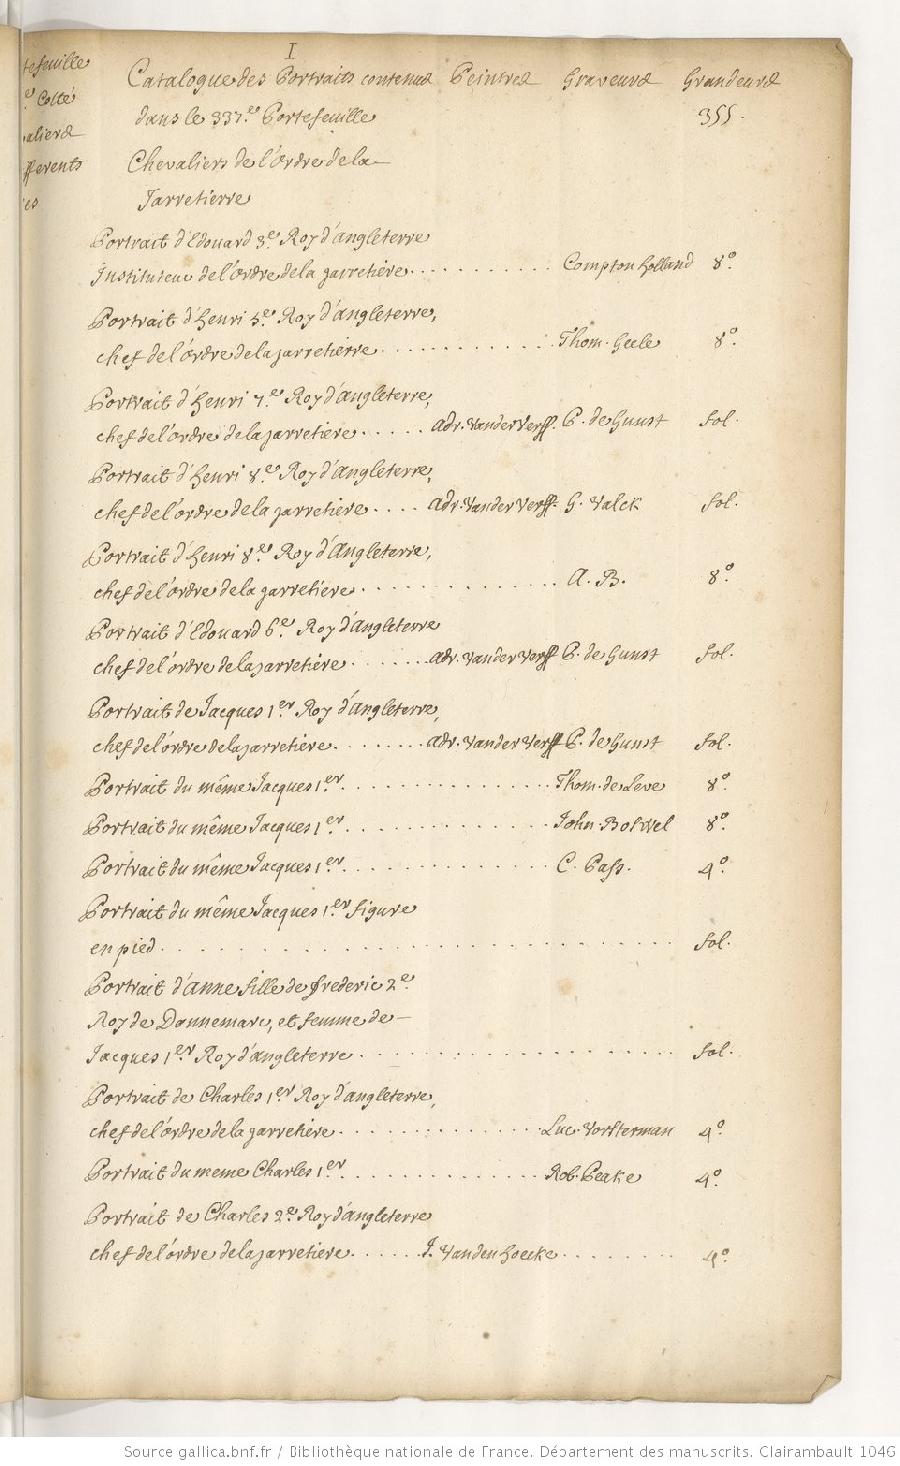 I
tefeuille
Cotté
aliers
fferents
es
Catalogue des Portraits contenus Peintres Graveurs Grandeurs
dans le 337.e Portefeuille 355.
Chevaliers de l'Ordre de la
Jarretierre
Portrait d'Edouard 3e. Roy d'angleterre
Instituteur de l'ordre de la jarretière.......... Compton Holland 8o.
Portrait d'Henri 5e. Roy d'angleterre,
chef de l'ordre de la jarretierre.......... Thom. Geele 8o.
Portrait d'Henri 7.e Roy d'Angleterre,
chef de l'ordre de la jarretiere..... adr. Vander Verff. P. de Gunst fol.
Portrait d'Henri 8e. Roy d'angleterre,
chef de l'ordre de la jarretiere.... adr. Vander Verff. G. Valck fol.
Portrait d'Henri 8e. Roy d'Angleterre,
chef de l'ordre de la jarretiere............ A. B. 8o
Portrait d'Edouard 6e. Roy d'Angleterre
chef de l'ordre de la jarretière....... adr. Vander Verff P. de Gunst fol.
Portrait de Jacques 1er. Roy d'angleterre,
chef de l'ordre de la jarretière........ adr. Vander Verff P. de Gunst fol.
Portrait du même Jacques 1er.............. Thom. de Leve 8o.
Portrait du même Jacques 1er.............. John Botwel 8o.
Portrait du même Jacques 1er.............. C. Pass. 4o.
Portrait du même Jacques 1er. figure
en pied............................ fol.
Portrait d'anne fille de frederic 2e.
Roy de Dannemarc, et femme de
Jacques 1er. Roy d'angleterre................. fol.
Portrait de Charles 1er Roy d'Angleterre,
chef de l'ordre de la jarretière............ Luc. Vorsterman 4o.
Portrait du meme Charles 1er............. Rob. Peake 4o.
Portrait de Charles 2e. Roy d'angleterre
chef de l'ordre de la jarretiere...... J. Vanden hoecke........ 4o.
Source gallica.bnf.fr / Bibliothèque nationale de France. Département des manuscrits. Clairambault 1046